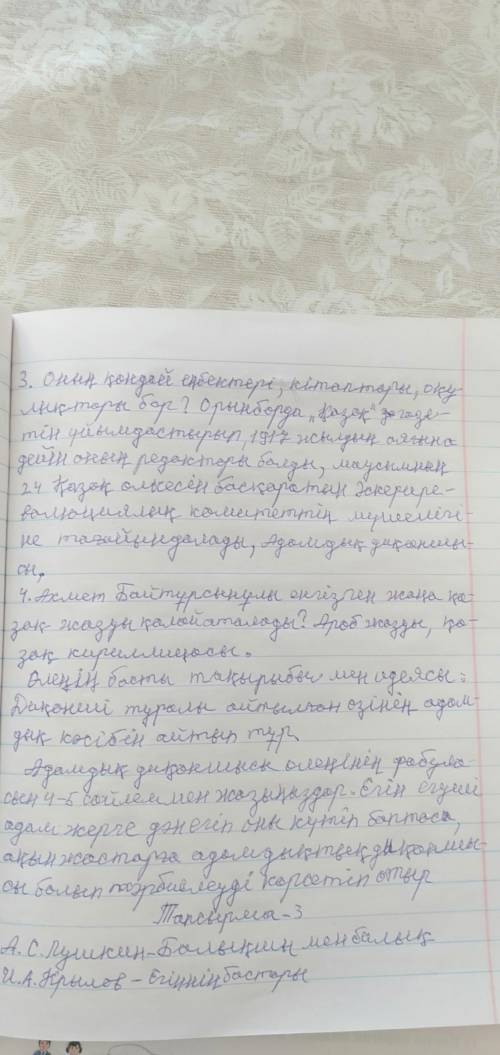 3. Оның қандай еңбектері, кітаптары, оқу-
лықтары бар? Орынборда „Қазақ" газеде-
тін ұйымдастырып, 1917 жылдың аяғына
дейін оның редакторы болды, маусымның
24 Қазақ өлкесін басқаратын Әскерире-
волюциялық комитеттің мүшелігі-
не тағайындалады, Адамдық диқаншы-
сы.
4. Ахмет Байтұрсынұлы енгізген жаңа қа-
зақ жазуы қалайаталады? Араб жазды, қа-
зақ кириллицасы.
Өлеңің басты тақырыбы мен идеясы:
Диқанші туралы айтылған өзінің адам-
дық кәсібін айтып тұр.
Адамдық диқаншысы өлеңінің фабула-
сын 4-5 сөйлеммен жазыңыздар. Егін егуші
адам жерге дән егіп оны күтіп баптаса,
ақын жастарға адамдықтың диқаншы-
сы болып тәрбиелеуді көрсетіп отыр
Тапсырма-3
А.С.Пушкин-Балықшы мен балық
И.А.Крылов - Егіннің бастары